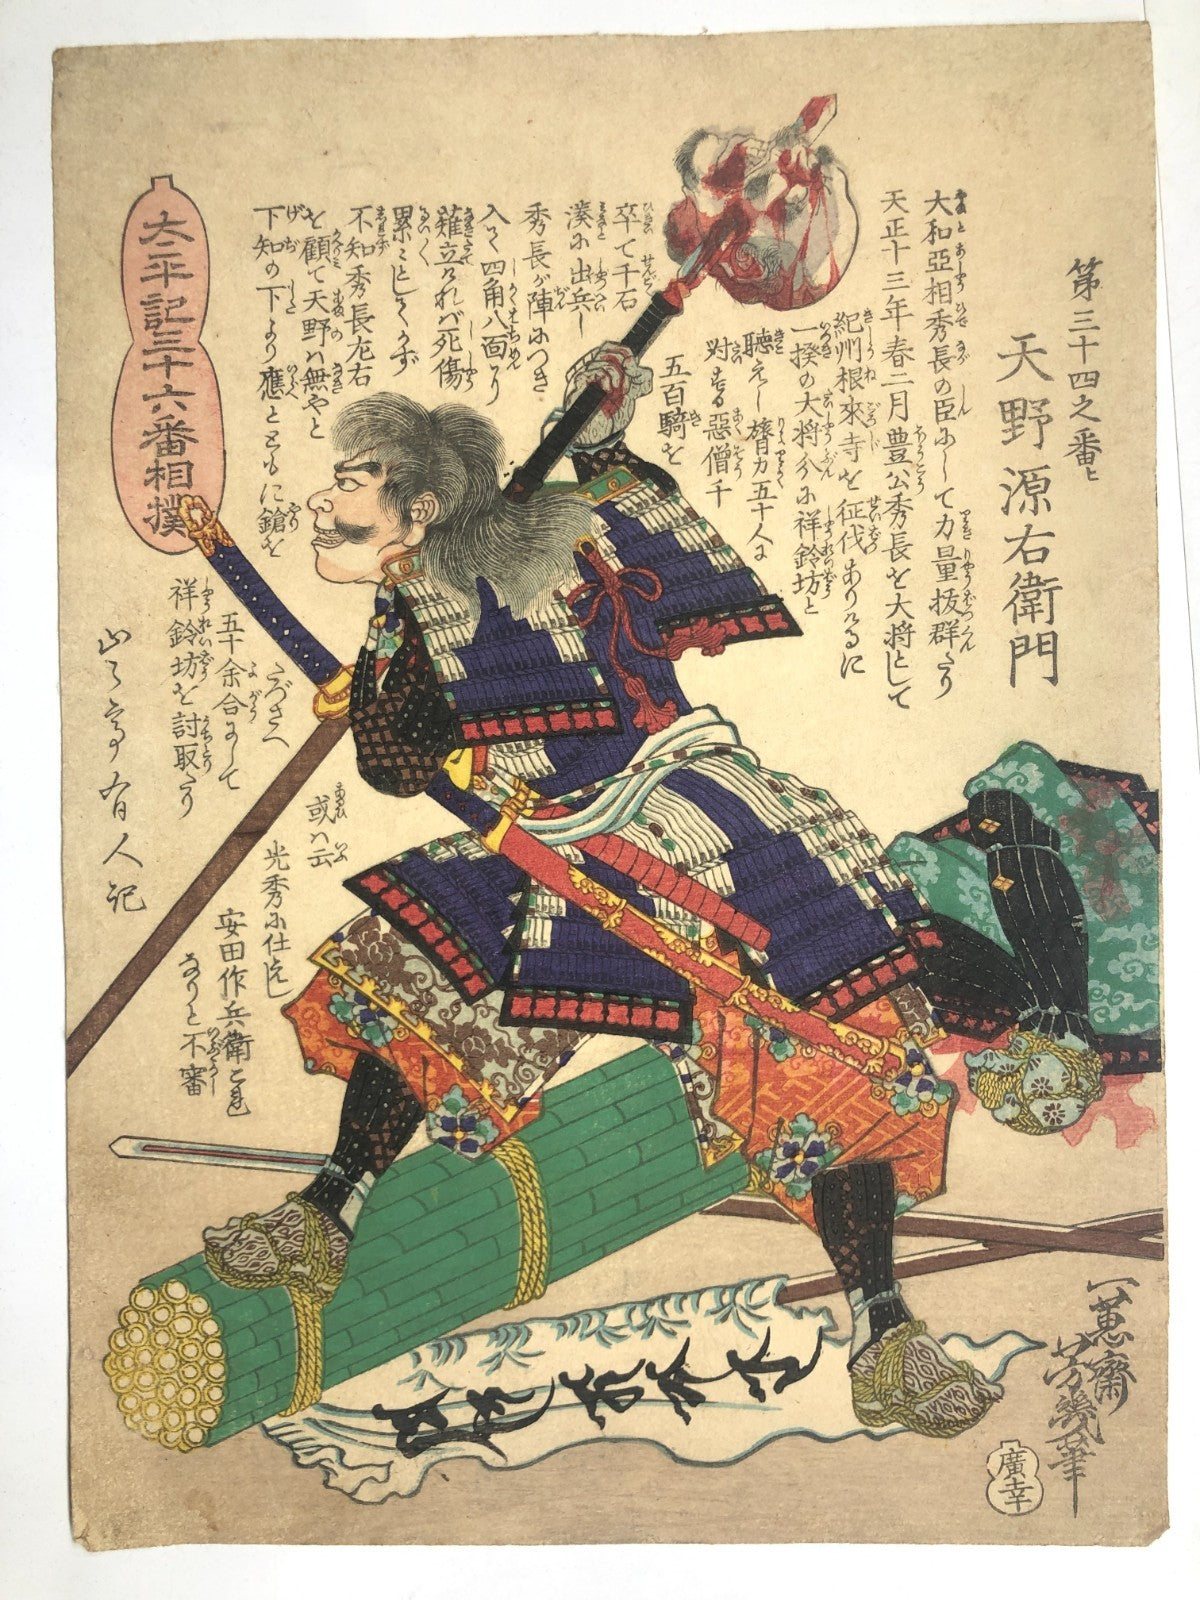 太平記三十六番相撲
第三十四之番ヒ
天野源右衛門
大和亞相秀長の臣にして力量抜群たり
天正十三年春二月豊公秀長を大将として
紀州根來寺を征伐ありけるに
一揆の大将分に祥鈴坊と
聴えし膂力五十人に
対する惡僧千
五百騎を
卒て千石
湊に出兵し
秀長が陣につき
入て四角八面に
薙立けれバ死傷
累々としてかず
不知秀長左右
を顧て天野ハ無やと
下知の下より應とともに鎗を
たづさへ
五十余合にして
祥鈴坊を討取たり
或ハ云
光秀に仕えし
安田作兵衛これ
なりと不審
山々亭有人記
一蕙齋
芳幾筆
廣幸